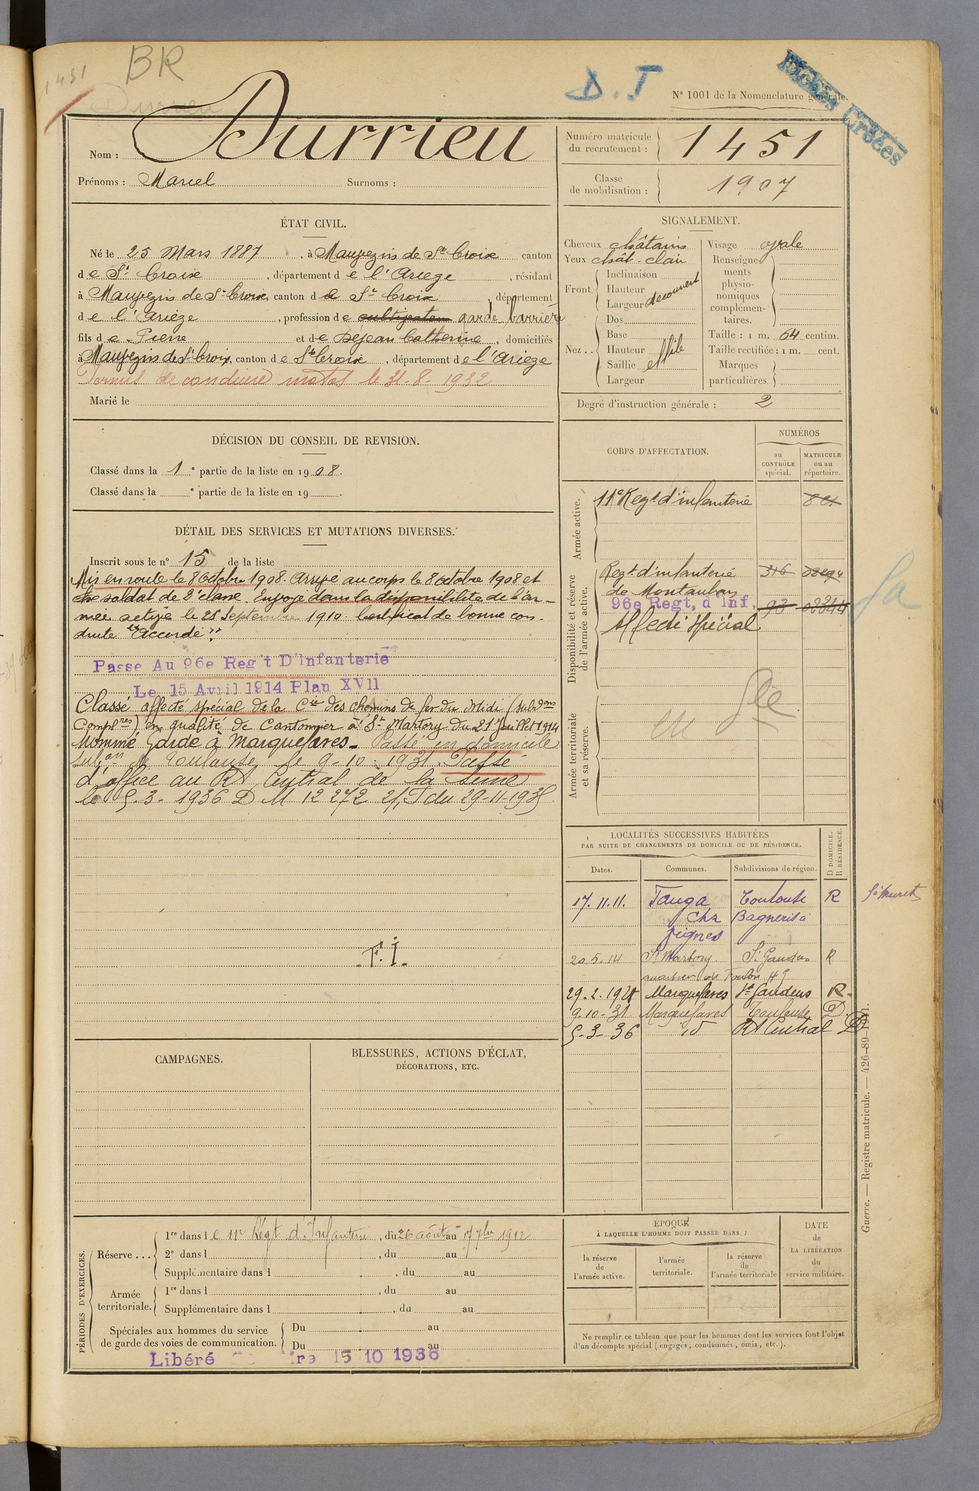 1451
BR
D.T
N° 1001 de la Nomenclature générale.
Fiches Créées
Nom : Durrieu
Prénoms : Marcel Surnoms :
Numéro matricule du recrutement : 1451
Classe de mobilisation : 1907
ÉTAT CIVIL.
Né le 25 Mars 1887, à Maupezins de Ste Croix canton
de Ste Croix, département de l'Ariege, résidant
à Maupezins de Ste Croix, canton de Ste Croix, département
de l'Ariège, profession de cultivateur garde-barrière
fils de Pierre et de Dejean Catherine, domiciliés
à Maupezins de Ste Croix, canton de Ste Croix, département de l'Ariège
Permis de conduire motos le 31-8-1932
Marié le
SIGNALEMENT.
Cheveux châtains
Yeux chât. clair
Front. Inclinaison
Hauteur
Largeur découvert
Nez.. Dos
Base
Hauteur effilé
Saillie
Largeur
Visage ovale
Renseignements physionomiques complémentaires.
Taille : 1 m. 64 centim.
Taille rectifiée : 1 m. cent.
Marques particulières.
Degré d'instruction générale : 2
DÉCISION DU CONSEIL DE REVISION.
Classé dans la 1e partie de la liste en 1908.
Classé dans la e partie de la liste en 19 .
DÉTAIL DES SERVICES ET MUTATIONS DIVERSES.
Inscrit sous le n° 15 de la liste
Mis en route le 8 octobre 1908. Arrivé au corps le 8 octobre 1908 et
dit soldat de 2e classe. Envoyé dans la disponibilité de l'ar-
mée active le 25 Septembre 1910. Certificat de bonne con-
duite "accordé"
Passe Au 96e Reg't D'Infanterie
Le 15 Avril 1914 Plan XVII
Classé affecté spécial de la Cie des chemins de fer du Midi (subdon
Compres) en qualité de Cantonnier à St Martory du 21 Juillet 1914
Nommé Garde à Marquefaves. Passé en domicile
subon de Toulouse le 9-10-1931. Passé
d'office au Rt Central de la Seine
le 5-3-1936 D M 12272 2/T du 29-11-1935
F.I.
CORPS D'AFFECTATION.
NUMÉROS
au CONTRÔLE spécial.
MATRICULE ou au répertoire.
Armée active.
11e Regt d'infanterie
Disponibilité et réserve de l'armée active.
Regt d'infanterie 316
de Montauban
96e Regt, d'Inf, 93
Affecté Spécial
Armée territoriale et sa réserve.
LOCALITÉS SUCCESSIVES HABITÉES
PAR SUITE DE CHANGEMENTS DE DOMICILE OU DE RÉSIDENCE.
Dates. Communes. Subdivisions de région. D DOMICILE. R RÉSIDENCE.
17.11.11. Fauga Toulouse R
20.5.14 St Martory St Gaudens R
29.2.1928 Marquefaves St Gaudens R.
9.10-31 Marquefaves Toulouse D.
5-3-36 id Rt Central D
CAMPAGNES.
BLESSURES, ACTIONS D'ÉCLAT,
DÉCORATIONS, ETC.
PÉRIODES D'EXERCICES.
Réserve... 1re dans le 11e Régt d'Infanterie, du 26 août au 17 7bre 1912
2e dans l , du au
Supplémentaire dans l , du au
Armée territoriale. 1re dans l , du au
Supplémentaire dans l , du au
Spéciales aux hommes du service de garde des voies de communication. Du au
Du au
Libéré 15 10 1936
ÉPOQUE
À LAQUELLE L'HOMME DOIT PASSER DANS :
la réserve de l'armée active.
l'armée territoriale.
la réserve de l'armée territoriale
DATE de LA LIBÉRATION du service militaire.
Ne remplir ce tableau que pour les hommes dont les services font l'objet
d'un décompte spécial (engagés, condamnés, omis, etc.).
Guerre. — Registre matricule. — 426-89-1911.